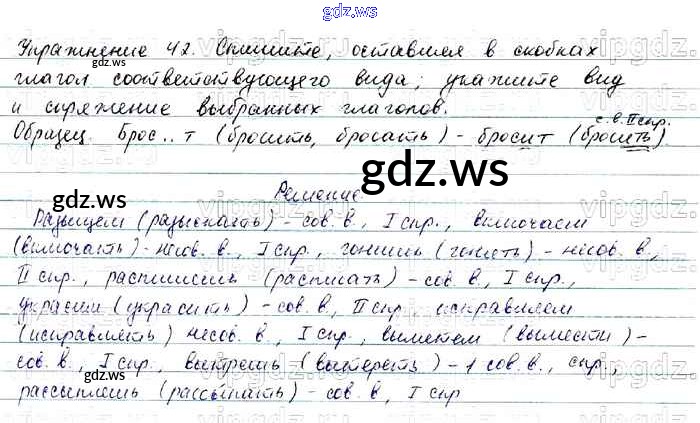 gdz.ws
Упражнение 42. Спишите, оставляя в скобках
глагол соответствующего вида; укажите вид
и спряжение выбранных глаголов.
с.в. II спр.
Образец. Брос..т (бросить, бросать) - бросит (бросить).
gdz.ws
gdz.ws
Решение
Разыщем (разыскать) - сов. в., I спр., включаем
(включать) - несов. в., I спр., гонишь (гнать) - несов. в.,
II спр., распишешь (расписать) - сов. в., I спр.,
украсим (украсить) - сов. в., II спр. исправляем
(исправлять) несов. в., I спр., выметем (вымести) -
сов. в., I спр., вытрешь (вытереть) - 1 сов. в., спр.,
gdz.ws
рассыплешь (рассыпать) - сов. в, I спр
gdz.ws